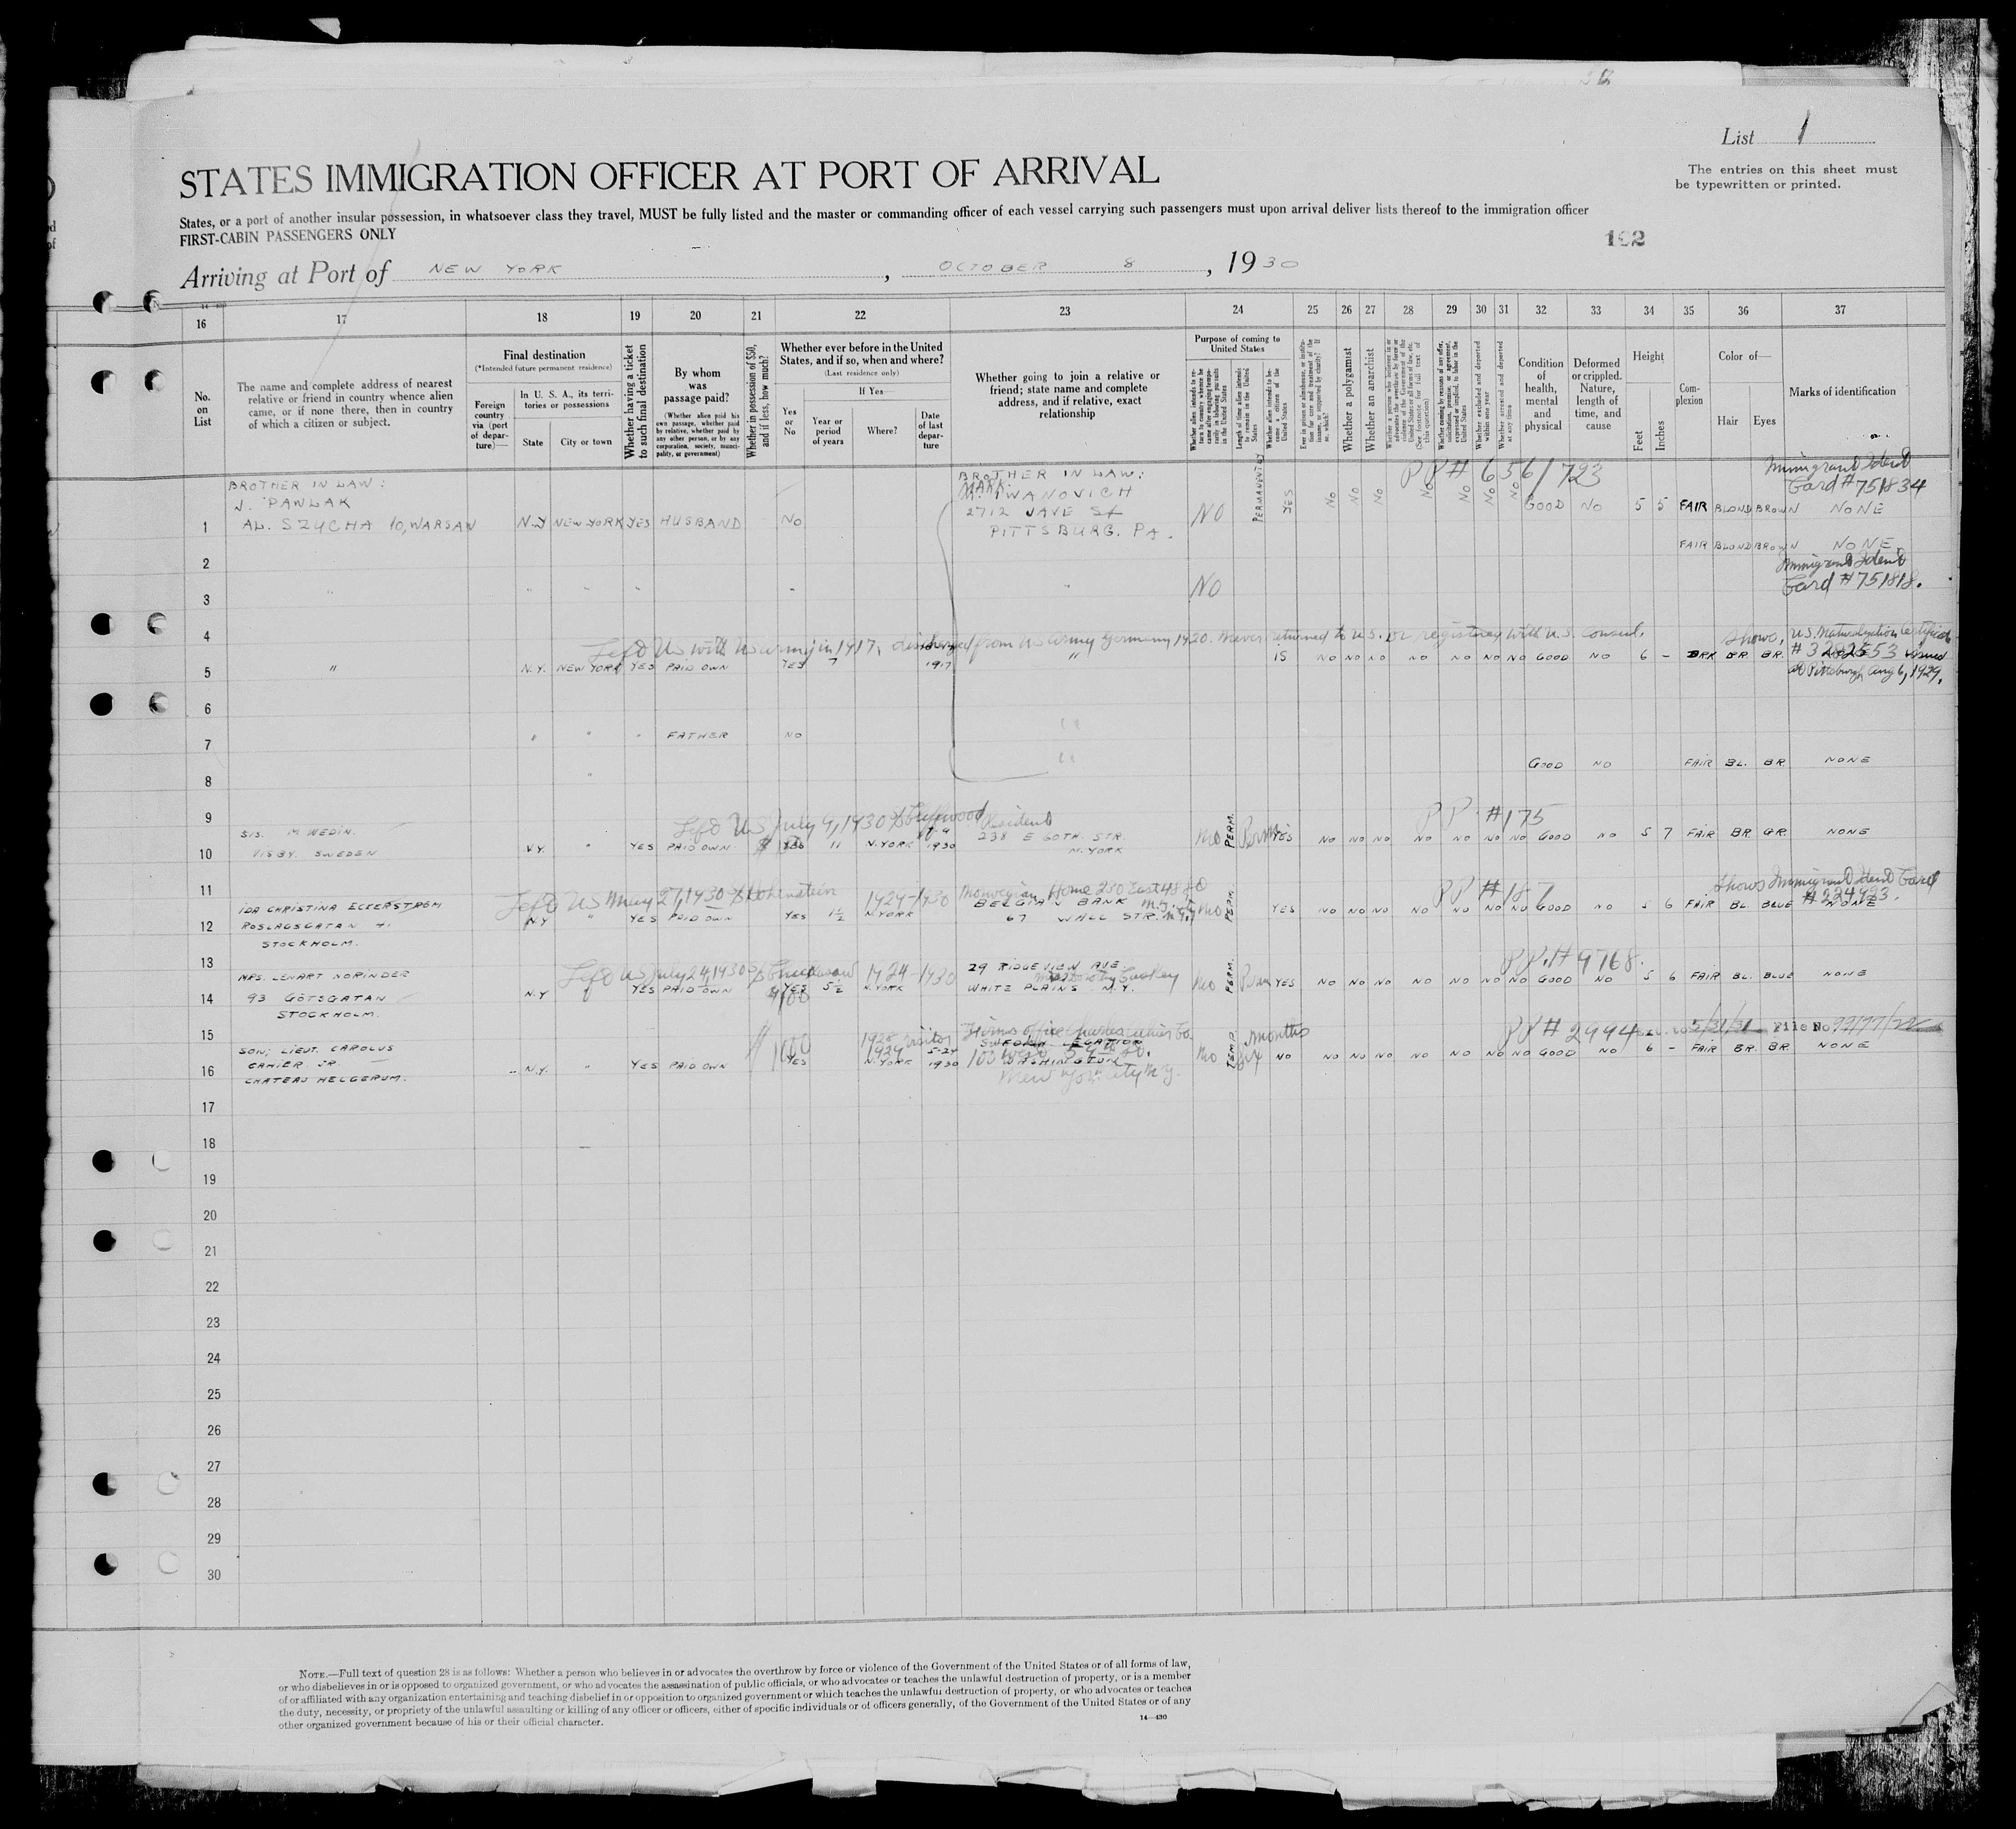 List 1
The entries on this sheet must
be typewritten or printed.
STATES IMMIGRATION OFFICER AT PORT OF ARRIVAL
States, or a port of another insular possession, in whatsoever class they travel, MUST be fully listed and the master or commanding officer of each vessel carrying such passengers must upon arrival deliver lists thereof to the immigration officer
FIRST-CABIN PASSENGERS ONLY
102
Arriving at Port of NEW YORK, OCTOBER 8, 1930
16 17 18 19 20 21 22 23 24 25 26 27 28 29 30 31 32 33 34 35 36 37
No.
on
List
The name and complete address of nearest
relative or friend in country whence alien
came, or if none there, then in country
of which a citizen or subject.
Final destination
(*Intended future permanent residence)
Foreign
country
via (port
of depar-
ture)—
In U. S. A., its terri-
tories or possessions
State
City or town
Whether having a ticket
to such final destination
By whom
was
passage paid?
(Whether alien paid his
own passage, whether paid
by relative, whether paid by
any other person, or by any
corporation, society, munici-
pality, or government)
Whether in possession of $50,
and if less, how much?
Whether ever before in the United
States, and if so, when and where?
(Last residence only)
If Yes—
Yes
or
No
Year or
period
of years
Where?
Date
of last
depar-
ture
Whether going to join a relative or
friend; state name and complete
address, and if relative, exact
relationship
Purpose of coming to
United States
Whether a polygamist
Whether an anarchist
Condition
of
health,
mental
and
physical
Deformed
or crippled.
Nature,
length of
time, and
cause
Height
Feet
Inches
Com-
plexion
Color of—
Hair
Eyes
Marks of identification
BROTHER IN LAW:
J. PAWLAK
1 AL. SZYCHA 10, WARSAW N.Y NEW YORK YES HUSBAND No
BROTHER IN LAW:
MARK IWANOVICH
2712 JANE St
PITTSBURG. PA.
NO PERMANENTLY YES No No No No No No No GOOD No 5 5 FAIR BLOND BROWN NONE
PP# 656/723
Immigrant Ident
Card #751834
2 FAIR BLOND BROWN NONE
Immigrant Ident
Card #751818.
3 " " " " " " NO
4
Left US with US army in 1917, discharged from US Army Germany 1920. Never returned to U.S. or registered with U.S. Consul.
Shows, U.S. Naturalization Certificate
# 3282553 issued
at Pittsburgh Aug 6, 1929.
5 " N.Y. NEW YORK YES PAID OWN YES 7 1917 " IS NO NO NO NO NO NO NO GOOD NO 6 - DRK BR BR.
6
7 " " " FATHER NO "
8 " " GOOD NO FAIR BL. BR NONE
9
Left US July 9, 1930
PP #175
SIS. M WEDIN.
10 VISBY. SWEDEN N.Y. " YES PAID OWN YES 11 N.YORK 1930
238 E 60TH. STR.
N.YORK
No PERM. YES NO NO NO NO NO NO NO GOOD NO 5 7 FAIR BR GR. NONE
11
Left US May 27, 1930
1924-1930
Norwegian Home 250 East 48 St
PP #187
Shows Immigrant Ident Card
#224493.
IDA CHRISTINA ECKERSTROM
12 ROSLAGSGATAN
STOCKHOLM.
N.Y " YES PAID OWN YES 1½ N.YORK
BELGIAN BANK
67 WALL STR. N.Y.
No PERM. YES NO NO NO NO NO NO NO GOOD NO 5 6 FAIR BL. BLUE NONE
13
Left US July 24, 1930
1924-1930
PP.# 9768.
MRS. LENART NORINDER
14 93 GÖTSGATAN
STOCKHOLM.
N.Y " YES PAID OWN $100 YES 5½ N.YORK
29 RIDGEVIEW AVE.
WHITE PLAINS N.Y.
No PERM. YES NO NO NO NO NO NO NO GOOD NO 5 6 FAIR BL. BLUE NONE
15
1928 visitor
PP # 2994
5/31/31 File No
SON; LIEUT. CAROLUS
16 CAHIER JR.
CHATEAU HELGERUM.
N.Y. " YES PAID OWN YES N.YORK 5-24 1930
WASHINGTON
New York City N.Y.
No TEMP. six months NO NO NO NO NO NO NO NO GOOD NO 6 - FAIR BR. BR NONE
17
18
19
20
21
22
23
24
25
26
27
28
29
30
NOTE.—Full text of question 28 is as follows: Whether a person who believes in or advocates the overthrow by force or violence of the Government of the United States or of all forms of law,
or who disbelieves in or is opposed to organized government, or who advocates the assassination of public officials, or who advocates or teaches the unlawful destruction of property, or is a member
of or affiliated with any organization entertaining and teaching disbelief in or opposition to organized government or which teaches the unlawful destruction of property, or who advocates or teaches
the duty, necessity, or propriety of the unlawful assaulting or killing of any officer or officers, either of specific individuals or of officers generally, of the Government of the United States or of any
other organized government because of his or their official character.
14—430